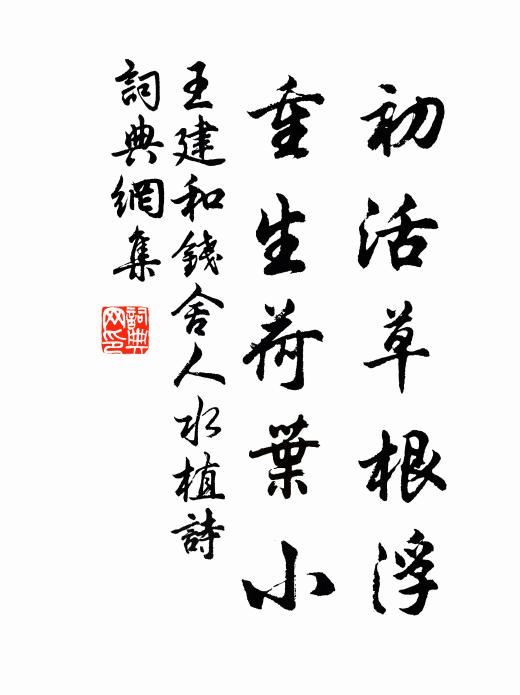 初活草根浮
重生荷葉小
王建和錢舍人水植詩
詞典網集
詞典网印